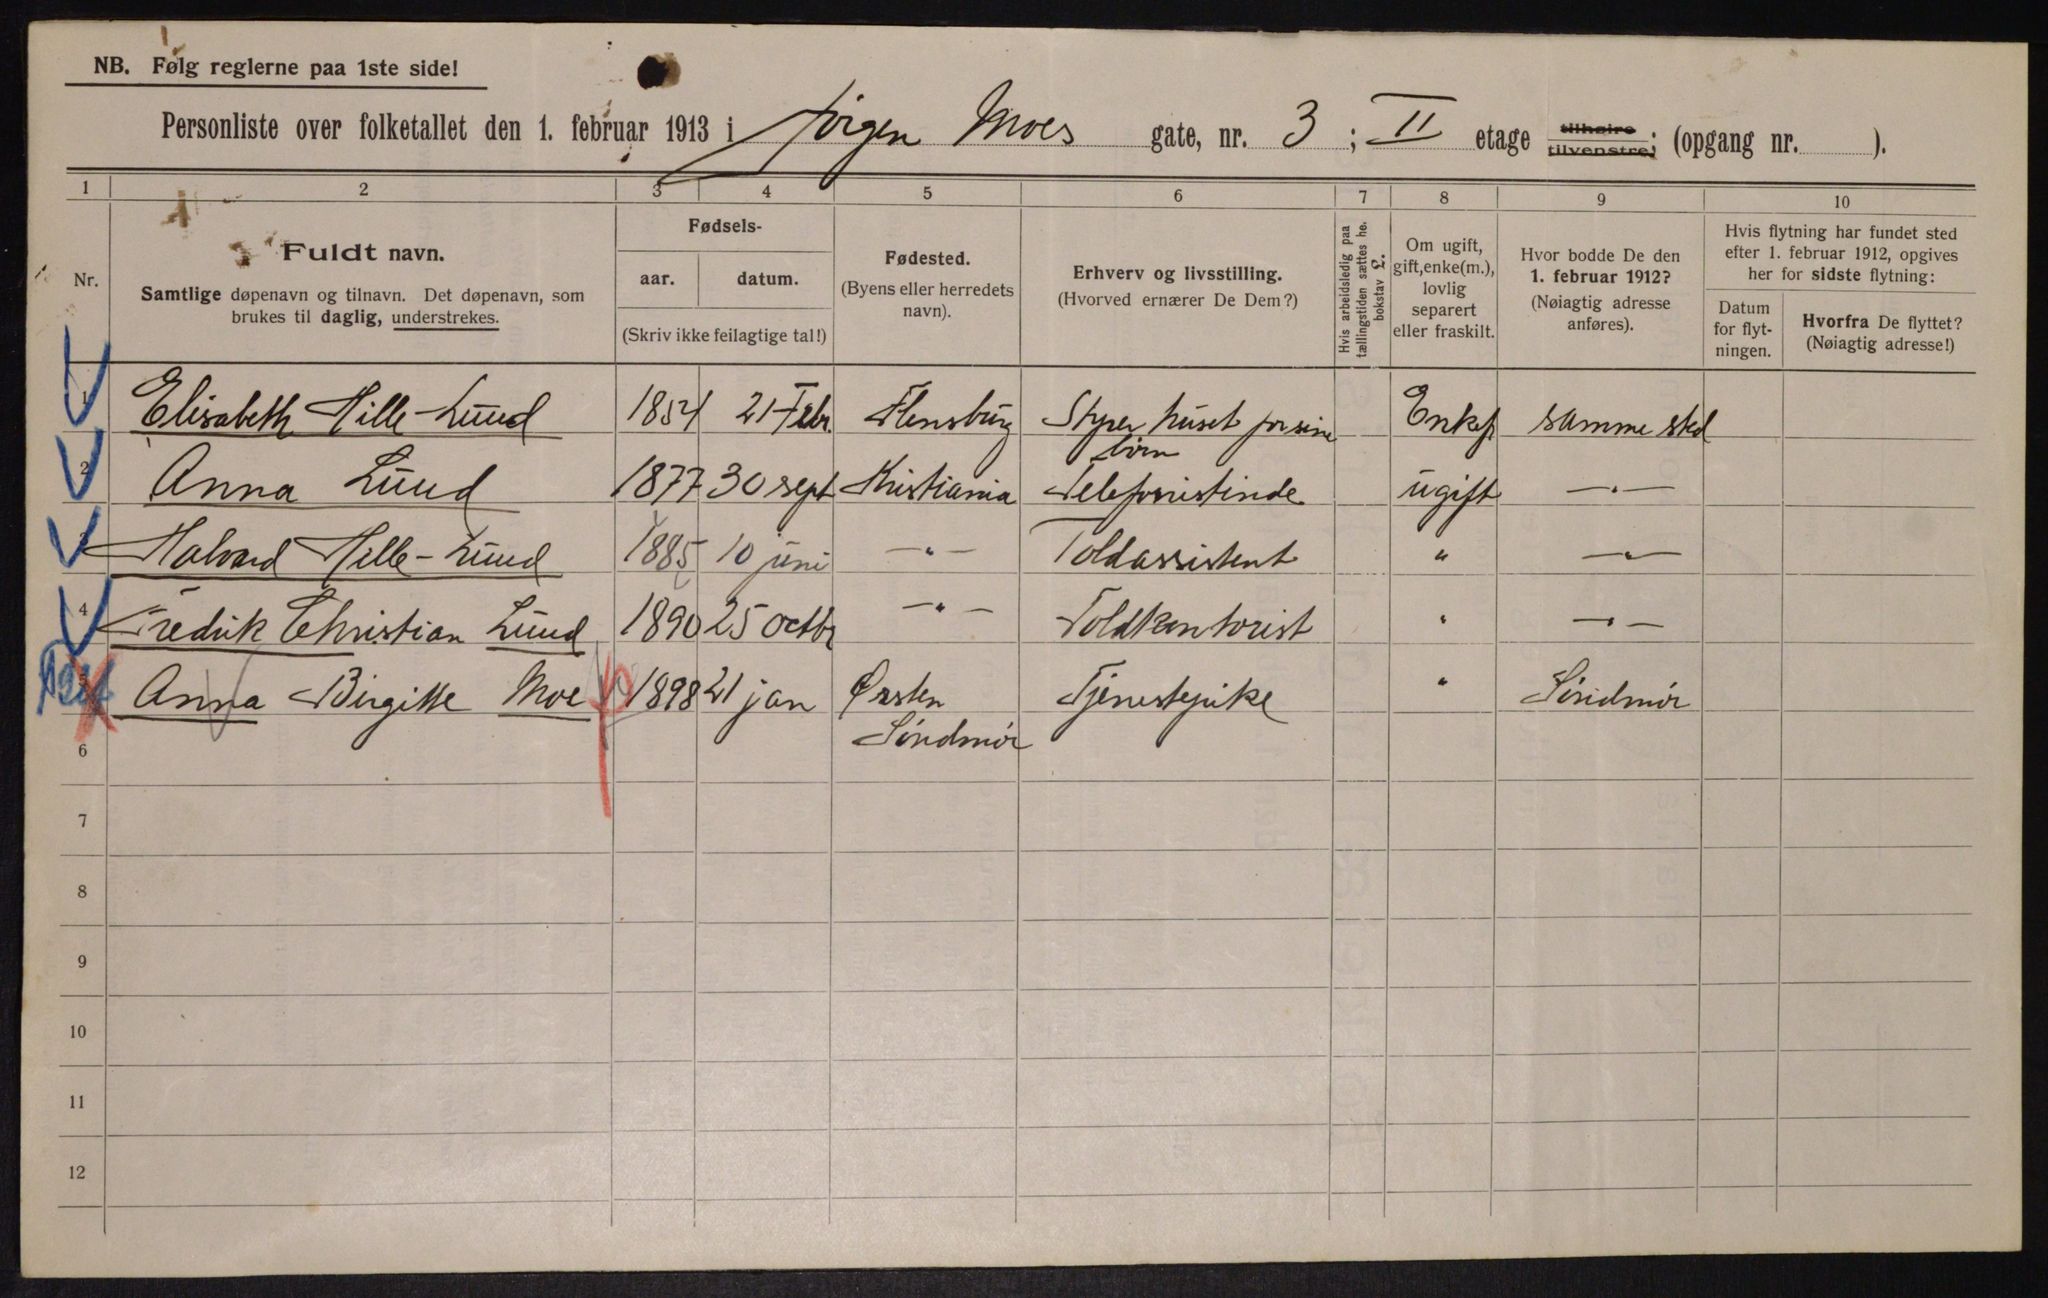 NB. Følg reglerne paa 1ste side!
Personliste over folketallet den 1. februar 1913 i Jørgen Moes gate, nr. 3 ; II etage tilhøire tilvenstre; (opgang nr. ).
1 2 3 4 5 6 7 8 9 10
Nr.
Fuldt navn.
Samtlige døpenavn og tilnavn. Det døpenavn, som
brukes til daglig, understrekes.
Fødsels-
aar. datum.
(Skriv ikke feilagtige tal!)
Fødested.
(Byens eller herredets
navn).
Erhverv og livsstilling.
(Hvorved ernærer De Dem?)
Hvis arbeidsledig paa
tællingstiden sættes he.
bokstav L.
Om ugift,
gift, enke(m.),
lovlig
separert
eller fraskilt.
Hvor bodde De den
1. februar 1912?
(Nøiagtig adresse
anføres).
Hvis flytning har fundet sted
efter 1. februar 1912, opgives
her for sidste flytning:
Datum
for flyt-
ningen.
Hvorfra De flyttet?
(Nøiagtig adresse!)
1 Elisabeth Hille-Lund 1854 21 Febr. Flensburg Styrer huset for sine Enkef samme sted
børn
2 Anna Lund 1877 30 sept Kristiania Telefonistinde ugift —„—
3 Halvard Hille-Lund 1885 10 juni —„— Toldassistent „ —„—
4 Fredrik Christian Lund 1890 25 octbr —„— Toldkontorist „ —„—
5 Anna Birgitte Moe 1898 21 jan Ørsten Tjenestepike „ Søndmør
Søndmør
6
7
8
9
10
11
12